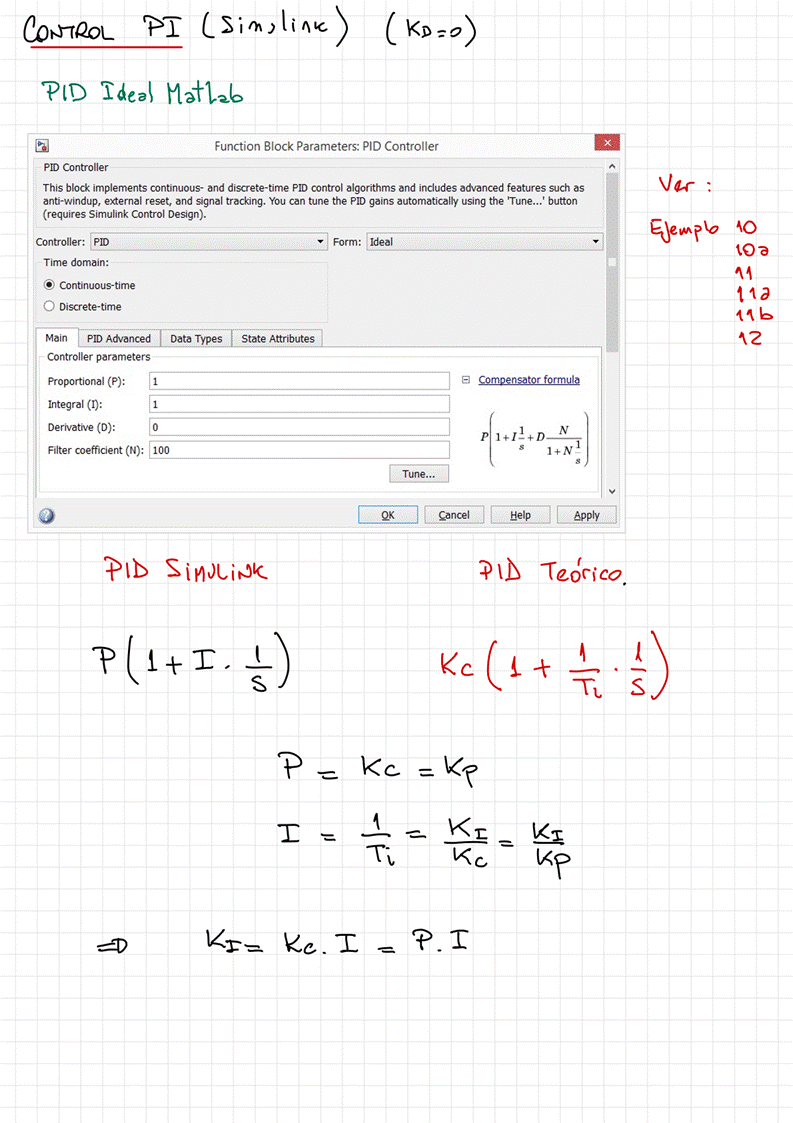 CONTROL PI (Simulink) (KD=0)
PID Ideal Matlab
Function Block Parameters: PID Controller
PID Controller
This block implements continuous- and discrete-time PID control algorithms and includes advanced features such as
anti-windup, external reset, and signal tracking. You can tune the PID gains automatically using the 'Tune...' button
(requires Simulink Control Design).
Controller: PID Form: Ideal
Time domain:
Continuous-time
Discrete-time
Main PID Advanced Data Types State Attributes
Controller parameters
Proportional (P): 1
Compensator formula
Integral (I): 1
Derivative (D): 0
Filter coefficient (N): 100
P(1+I 1/s + D N/(1+N 1/s))
Tune...
OK Cancel Help Apply
Ver :
Ejemplo 10
10a
11
11a
11b
12
PID Simulink PID Teórico.
P(1 + I . 1/s) Kc(1 + 1/Ti . 1/s)
P = Kc = Kp
I = 1/Ti = KI/Kc = KI/Kp
⇒ KI = Kc . I = P . I